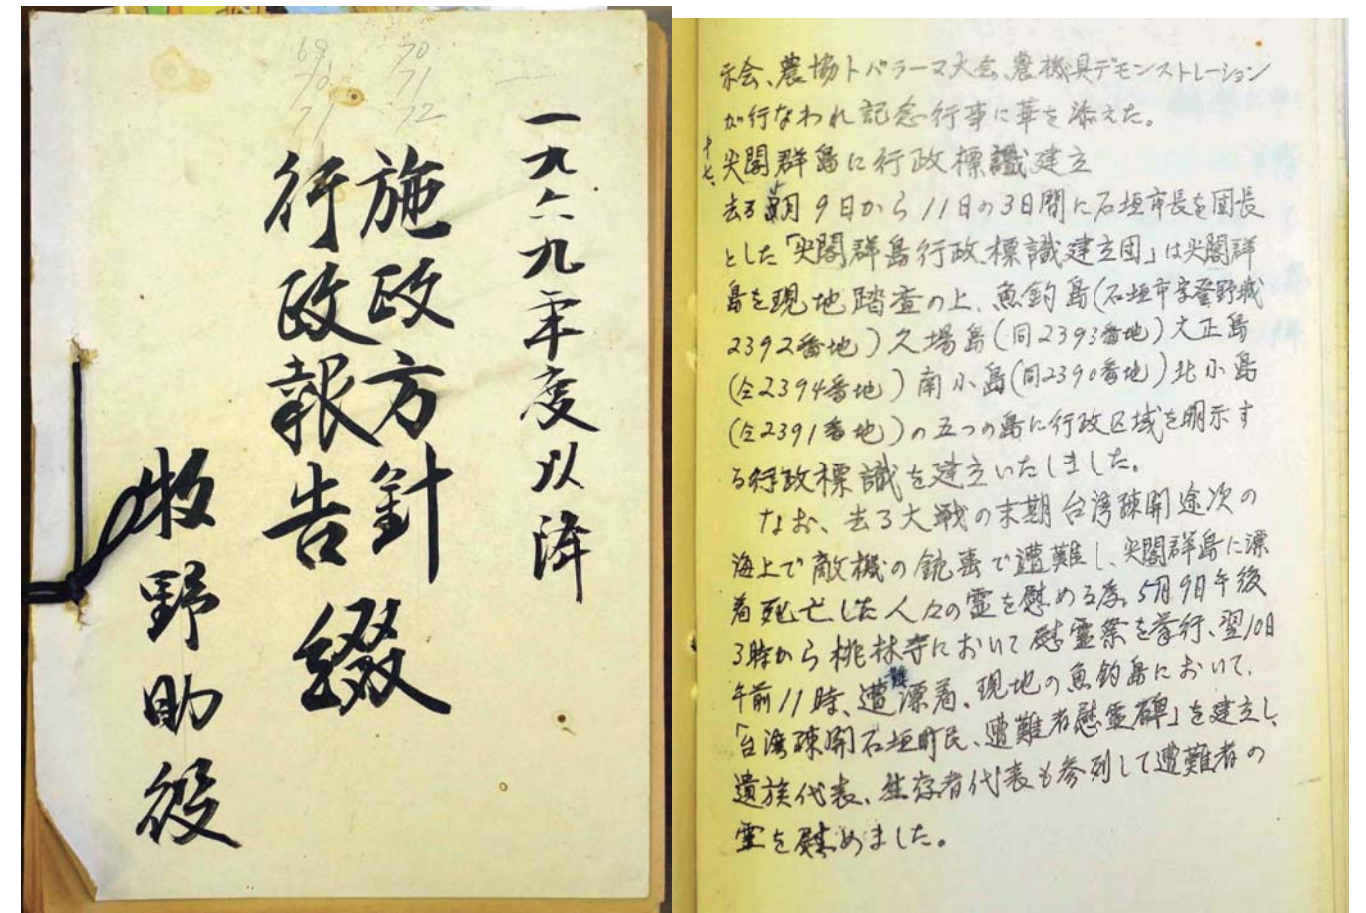 69 70
70 71
71 72
一九六九年度以降
施政方針
行政報告
綴
牧野助役
示会、農協トバラーマ大会、農機具デモンストレーション
が行なわれ記念行事に華を添えた。
十七、尖閣群島に行政標識建立
去る 9日から11日の3日間に石垣市長を団長
とした「尖閣群島行政標識建立団」は尖閣群
島を現地踏査の上、魚釣島(石垣市字登野城
2392番地)久場島(同2393番地)大正島
(仝2394番地)南小島(同2390番地)北小島
(仝2391番地)の五つの島に行政区域を明示す
る行政標識を建立いたしました。
なお、去る大戦の末期台湾疎開途次の
海上で敵機の銃撃で遭難し、尖閣群島に漂
着死亡した人々の霊を慰める為、5月9日午後
3時から桃林寺において慰霊祭を挙行、翌10日
午前11時、遭難漂着、現地の魚釣島において、
「台湾疎開石垣町民、遭難者慰霊碑」を建立し、
遺族代表、生存者代表も参列して遭難者の
霊を慰めました。